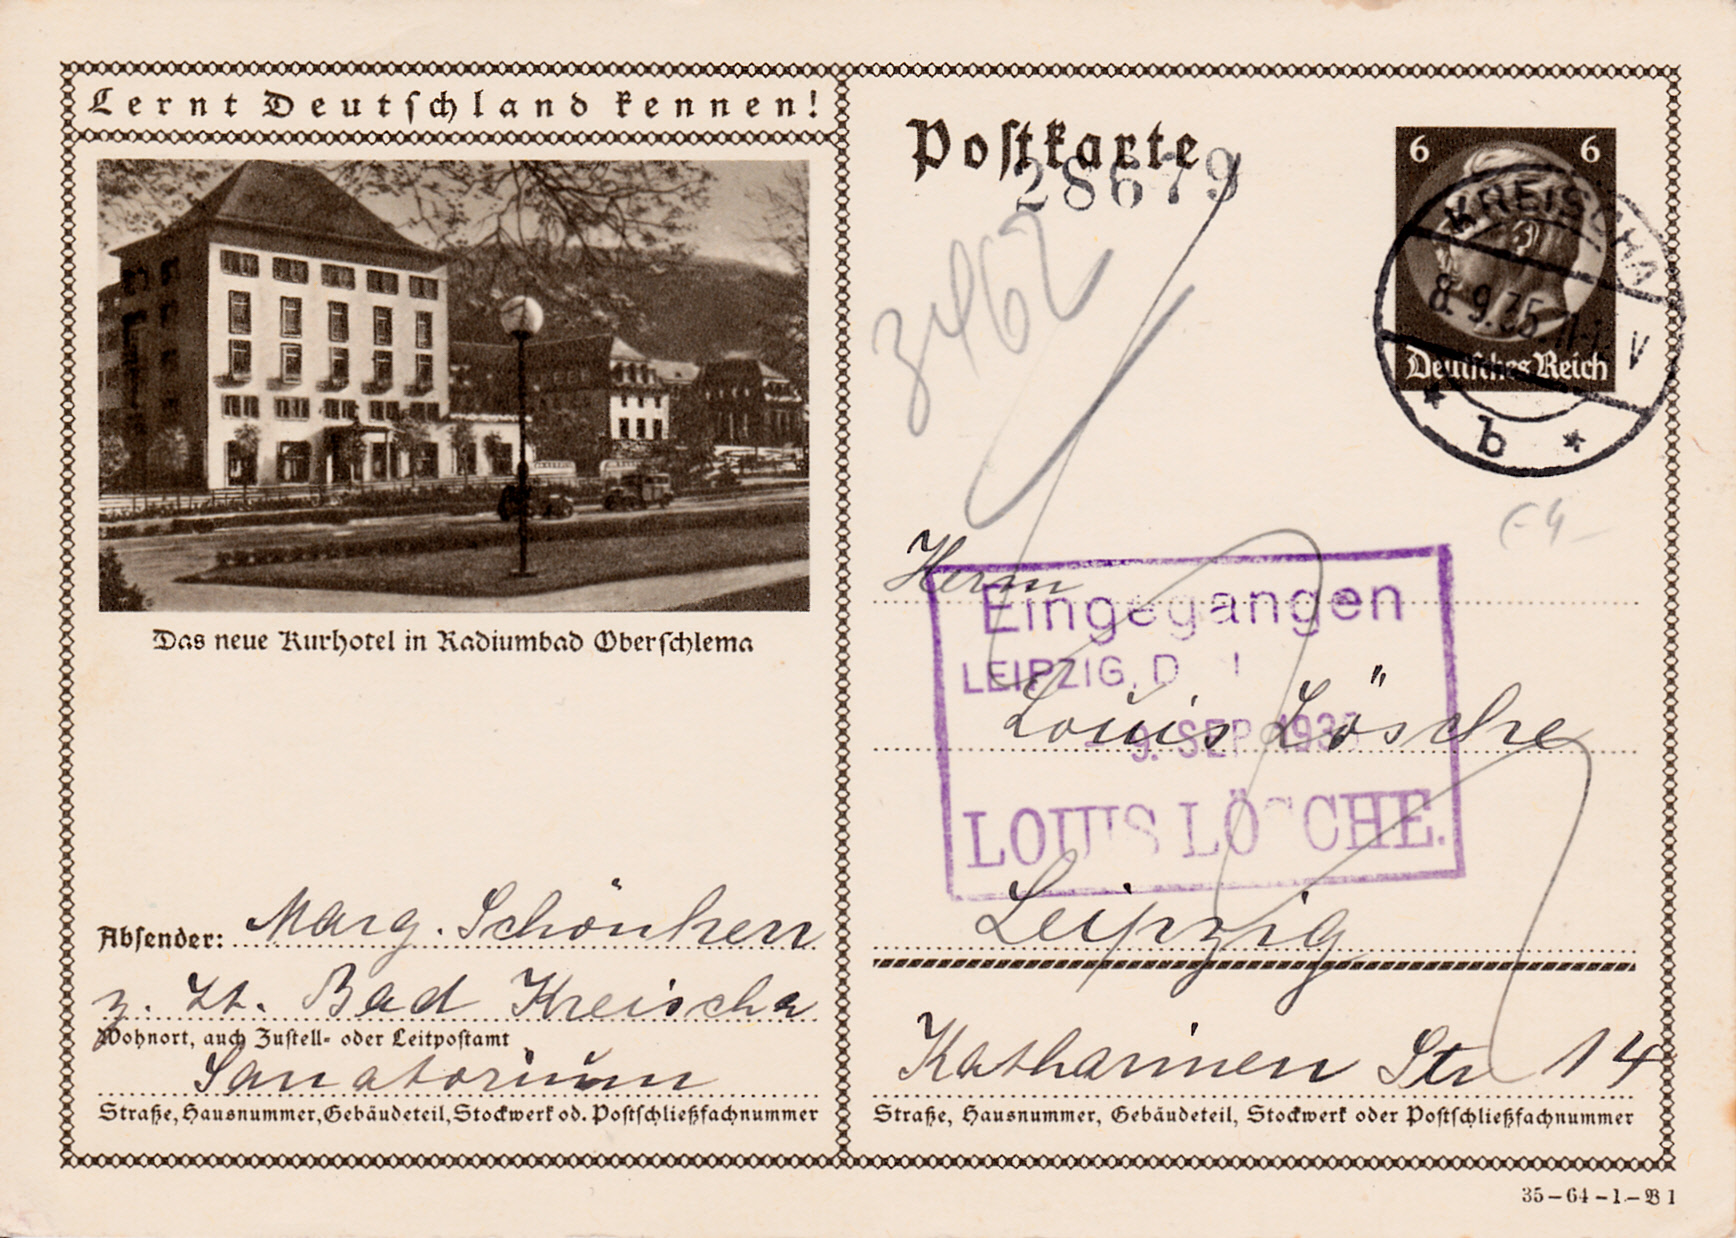 Lernt Deutschland kennen!
Das neue Kurhotel in Radiumbad Oberschlema
Absender: Marg. Schönherr
z. Zt. Bad Kreischa
Wohnort, auch Zustell- oder Leitpostamt
Sanatorium
Straße, Hausnummer, Gebäudeteil, Stockwerk od. Postschließfachnummer
Postkarte
28679
3462
6 6
Deutsches Reich
KREISCHA
8.9.35
b
Herrn
Eingegangen
LEIPZIG, D
Louis Lösche
9. SEP. 193
LOUIS LÖSCHE.
Leipzig
Katharinen Str 14
Straße, Hausnummer, Gebäudeteil, Stockwerk oder Postschließfachnummer
35-64-1-B 1